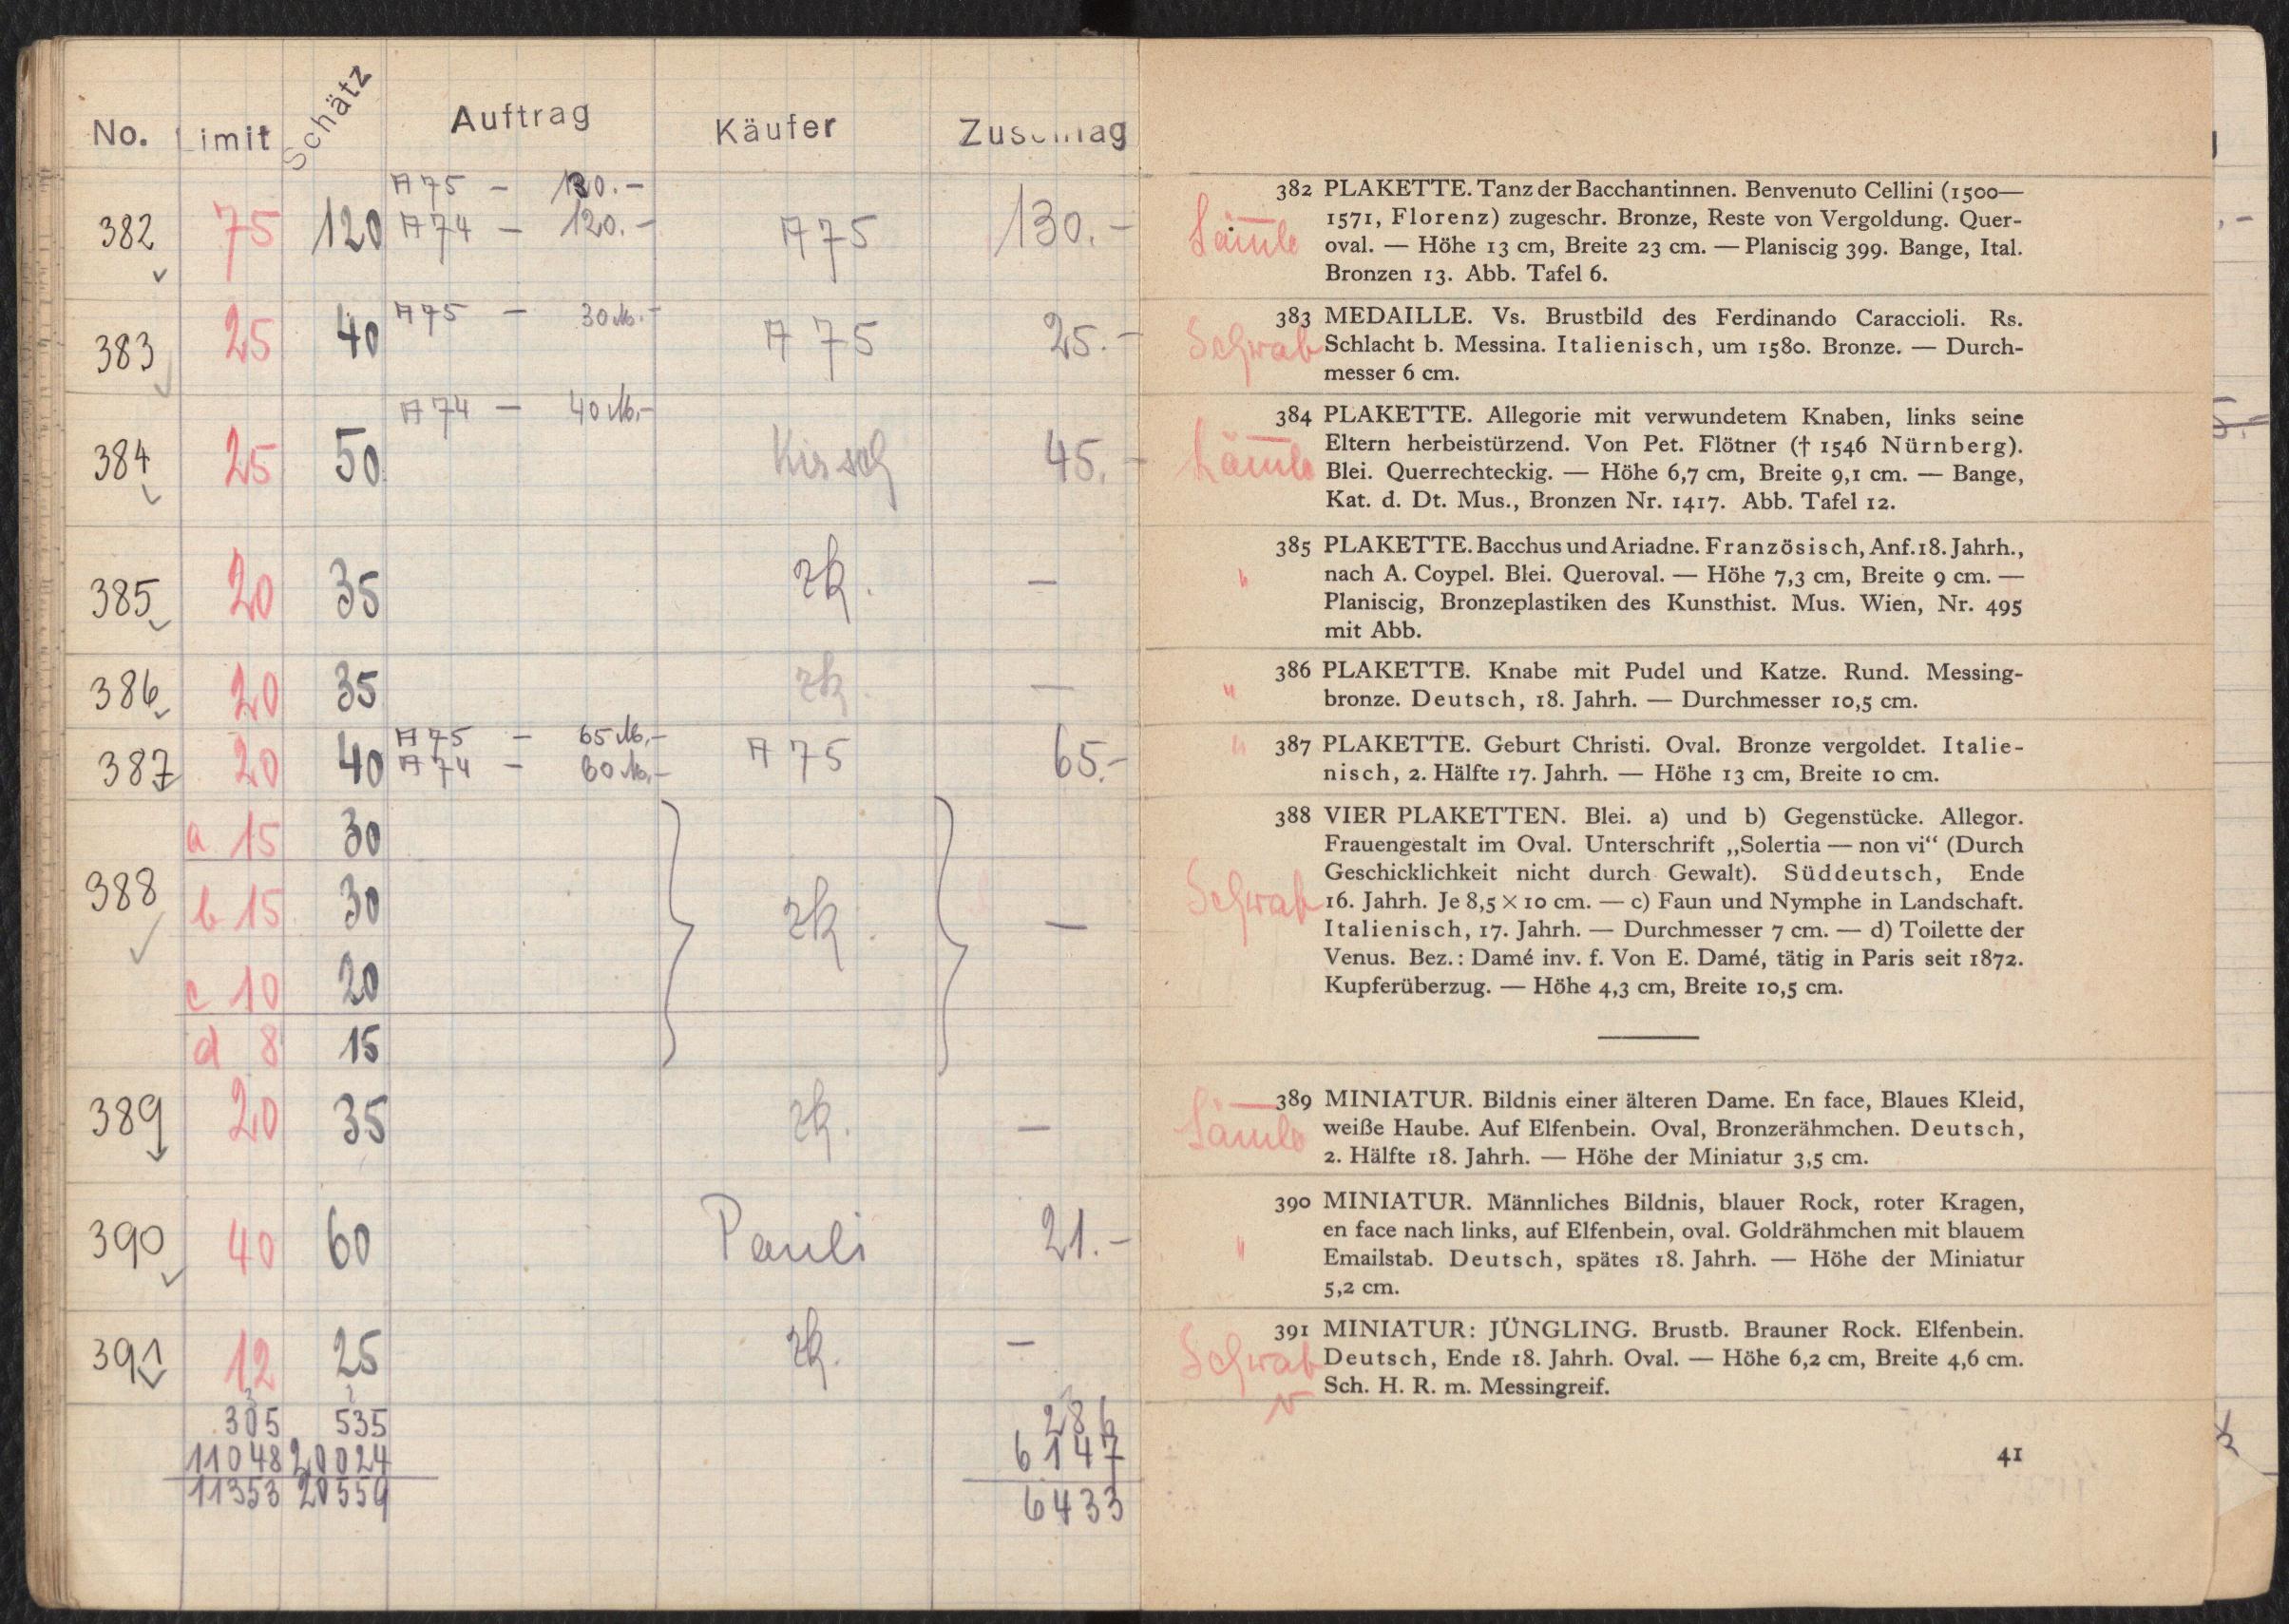 No. Limit Schätz Auftrag Käufer Zuschlag
A 75 — 130.—
382 75 120 A 74 — 120.— A 75 130.—
A 75 — 30 M.—
383 25 40 A 75 25.—
A 74 — 40 M.—
384 25 50 Kirsch 45.—
385 20 35 zk. —
386 20 35 zk. —
A 75 — 65 M.—
387 20 40 A 74 — 60 M.— A 75 65.—
a 15 30
388 b 15 30 zk. —
c 10 20
d 8 15
389 20 35 zk. —
390 40 60 Pauli 21.—
391 12 25 zk. —
305 535 286
11048 20024 6147
11353 20559 6433
382 PLAKETTE. Tanz der Bacchantinnen. Benvenuto Cellini (1500—
1571, Florenz) zugeschr. Bronze, Reste von Vergoldung. Quer-
oval. — Höhe 13 cm, Breite 23 cm. — Planiscig 399. Bange, Ital.
Bronzen 13. Abb. Tafel 6.
383 MEDAILLE. Vs. Brustbild des Ferdinando Caraccioli. Rs.
Schwab Schlacht b. Messina. Italienisch, um 1580. Bronze. — Durch-
messer 6 cm.
384 PLAKETTE. Allegorie mit verwundetem Knaben, links seine
Eltern herbeistürzend. Von Pet. Flötner († 1546 Nürnberg).
Blei. Querrechteckig. — Höhe 6,7 cm, Breite 9,1 cm. — Bange,
Kat. d. Dt. Mus., Bronzen Nr. 1417. Abb. Tafel 12.
385 PLAKETTE. Bacchus und Ariadne. Französisch, Anf. 18. Jahrh.,
" nach A. Coypel. Blei. Queroval. — Höhe 7,3 cm, Breite 9 cm. —
Planiscig, Bronzeplastiken des Kunsthist. Mus. Wien, Nr. 495
mit Abb.
386 PLAKETTE. Knabe mit Pudel und Katze. Rund. Messing-
" bronze. Deutsch, 18. Jahrh. — Durchmesser 10,5 cm.
" 387 PLAKETTE. Geburt Christi. Oval. Bronze vergoldet. Italie-
nisch, 2. Hälfte 17. Jahrh. — Höhe 13 cm, Breite 10 cm.
388 VIER PLAKETTEN. Blei. a) und b) Gegenstücke. Allegor.
Frauengestalt im Oval. Unterschrift „Solertia — non vi“ (Durch
Geschicklichkeit nicht durch Gewalt). Süddeutsch, Ende
Schwab 16. Jahrh. Je 8,5 × 10 cm. — c) Faun und Nymphe in Landschaft.
Italienisch, 17. Jahrh. — Durchmesser 7 cm. — d) Toilette der
Venus. Bez.: Damé inv. f. Von E. Damé, tätig in Paris seit 1872.
Kupferüberzug. — Höhe 4,3 cm, Breite 10,5 cm.
389 MINIATUR. Bildnis einer älteren Dame. En face, Blaues Kleid,
weiße Haube. Auf Elfenbein. Oval, Bronzerähmchen. Deutsch,
2. Hälfte 18. Jahrh. — Höhe der Miniatur 3,5 cm.
390 MINIATUR. Männliches Bildnis, blauer Rock, roter Kragen,
en face nach links, auf Elfenbein, oval. Goldrähmchen mit blauem
" Emailstab. Deutsch, spätes 18. Jahrh. — Höhe der Miniatur
5,2 cm.
391 MINIATUR: JÜNGLING. Brustb. Brauner Rock. Elfenbein.
Schwab Deutsch, Ende 18. Jahrh. Oval. — Höhe 6,2 cm, Breite 4,6 cm.
Sch. H. R. m. Messingreif.
41